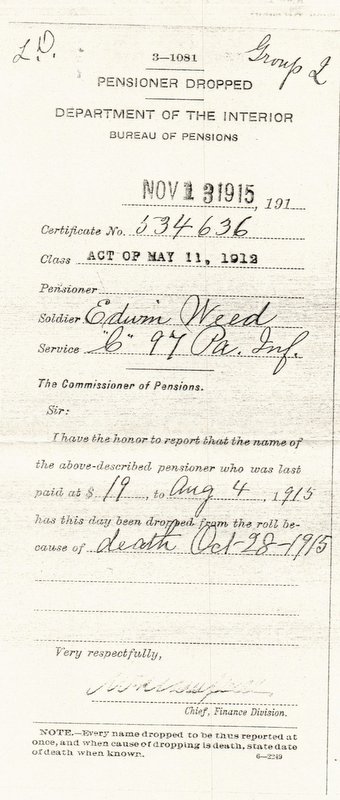 L.D.
Group 2
3—1081
PENSIONER DROPPED
DEPARTMENT OF THE INTERIOR
BUREAU OF PENSIONS
NOV 13 1915, 191
Certificate No. 534636
Class ACT OF MAY 11, 1912
Pensioner
Soldier Edwin Weed
Service "C" 97 Pa. Inf.
The Commissioner of Pensions.
Sir:
I have the honor to report that the name of
the above-described pensioner who was last
paid at $ 19, to Aug 4, 1915
has this day been dropped from the roll be-
cause of death Oct-28-1915
Very respectfully,
Chief, Finance Division.
NOTE.—Every name dropped to be thus reported at
once, and when cause of dropping is death, state date
of death when known.
6—2249